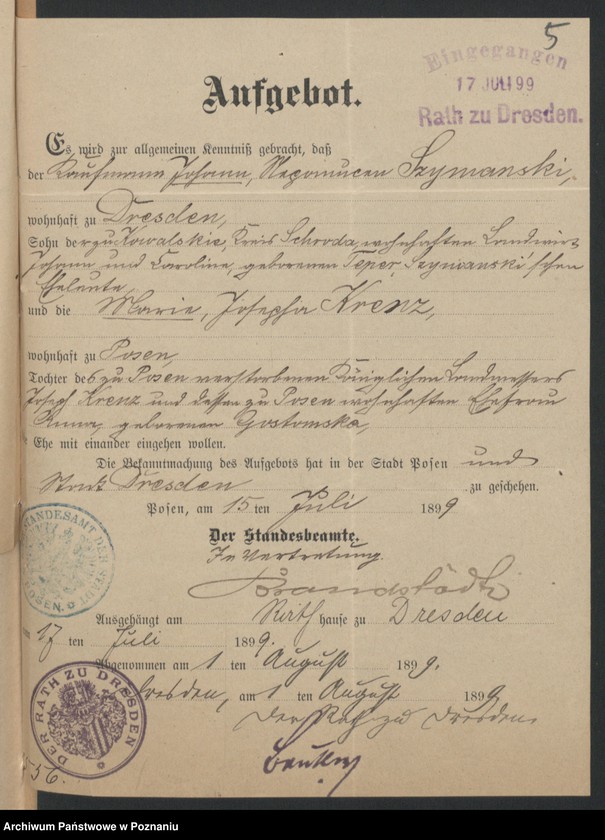 5
Eingegangen
17 JULI 99
Rath zu Dresden.
Aufgebot.
Es wird zur allgemeinen Kenntniß gebracht, daß
der Kaufmann Johann, Nepomucen Szymanski,
wohnhaft zu Dresden,
Sohn der zu Kowalskie, Kreis Schroda, wohnhaften Landwirt
Johann und Caroline, geborenen Tepor, Szymanski'schen
Eheleute,
und die Marie, Josepha Krenz,
wohnhaft zu Posen,
Tochter des zu Posen verstorbenen Königlichen Landmessers
Joseph Krenz und dessen zu Posen wohnhaften Ehefrau
Anna, geborenen Gostomska,
Ehe mit einander eingehen wollen.
Die Bekanntmachung des Aufgebots hat in der Stadt Posen und
Stadt Dresden zu geschehen.
Posen, am 15 ten Juli 1899
Der Standesbeamte.
In Vertretung.
Brandstädt
STANDESAMT DER STADT POSEN
Ausgehängt am Rathhause zu Dresden
17 ten Juli 1899.
Abgenommen am 1 ten August 1899.
Dresden, am 1 ten August 1899.
Der Rath zu Dresden
DER RATH ZU DRESDEN
56.
Archiwum Państwowe w Poznaniu